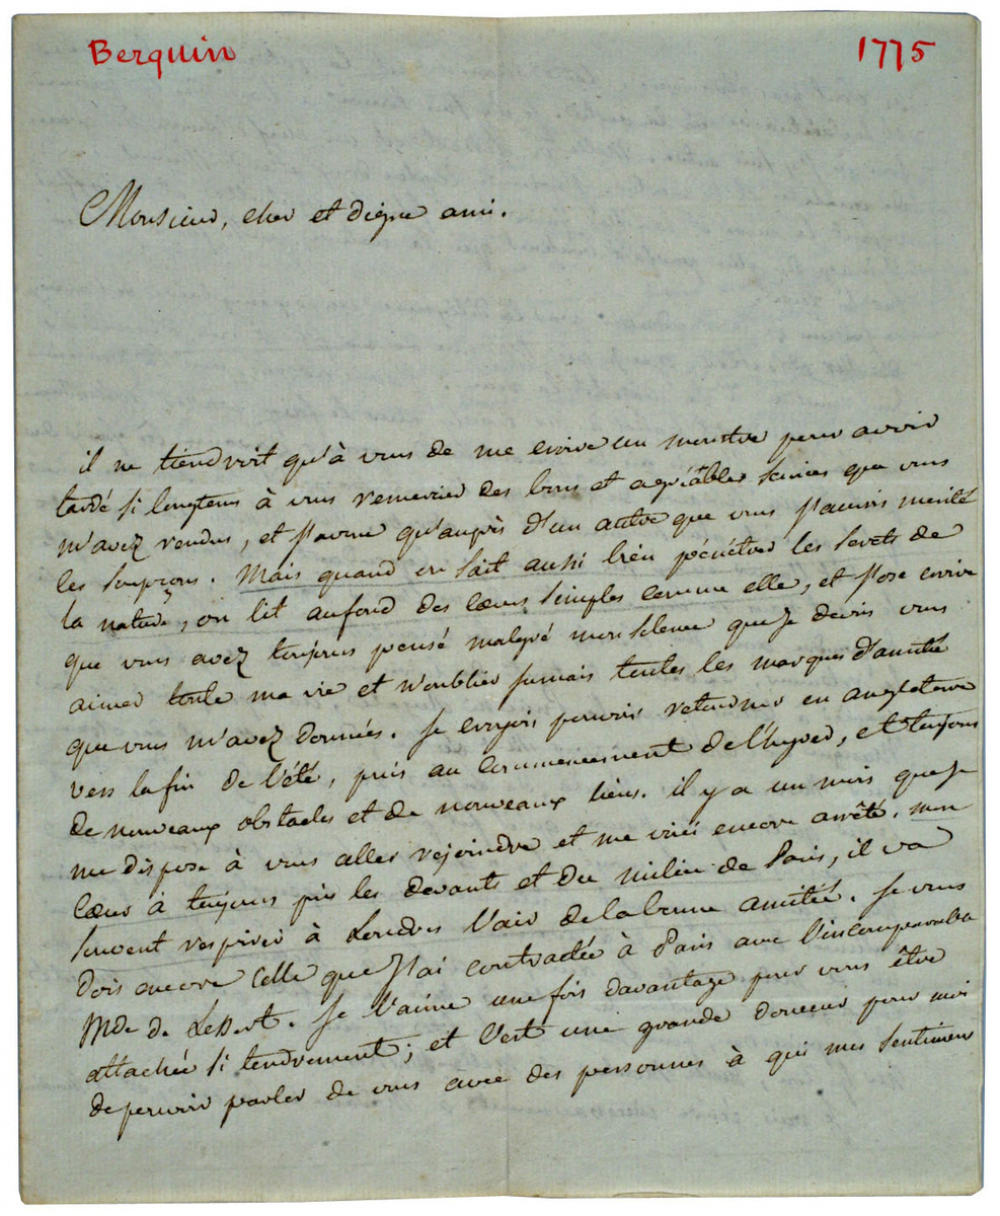 Berquin 1775
Monsieur, cher et digne ami.
il ne tiendroit qu'à vous de me croire un monstre pour avoir
tardé si longtems à vous remercier des bons et agréables services que vous
m'avez rendus, et j'avoue qu'auprès d'un autre que vous j'aurois mérité
les soupçons. Mais quand on sait aussi bien pénétrer les secrets de
la nature, on lit au fond des cœurs simples comme elle, et j'ose croire
que vous avez toujours pensé malgré mon silence que je devois vous
aimer toute ma vie et n'oublier jamais toutes les marques d'amitié
que vous m'avez données. Je croyois pouvoir retourner en angleterre
vers la fin de l'été, puis au commencement de l'hyver, et toujours
de nouveaux obstacles et de nouveaux liens. il y a un mois que je
me dispose à vous aller rejoindre et me voici encore arrêté. mon
cœur a toujours pris les devants et du milieu de Paris, il va
souvent respirer à Londres l'air de la bonne amitié. Je vous
dois encore celle que j'ai contractée à Paris avec l'incomparable
Mde de Lessert. Je l'aime une fois davantage pour vous être
attachée si tendrement; et c'est une grande douceur pour moi
de pouvoir parler de vous avec des personnes à qui mes sentimens